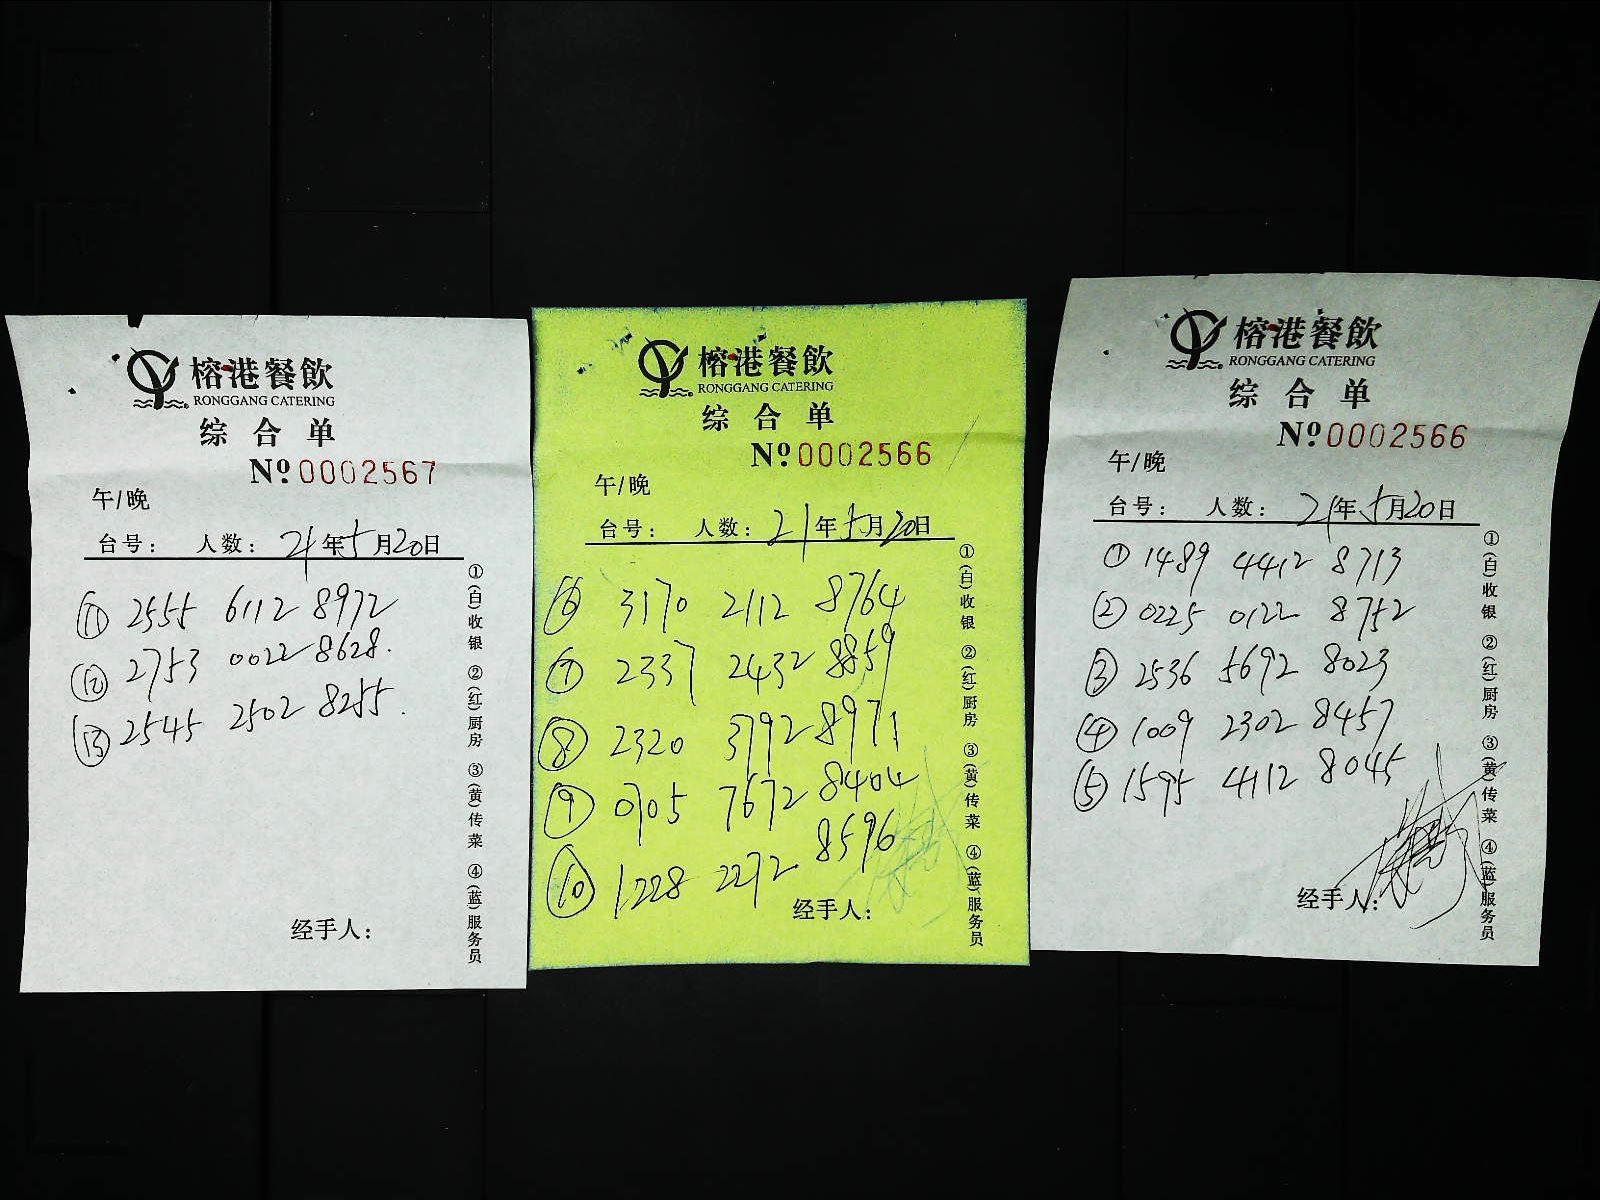 榕港餐飲
RONGGANG CATERING
综合单
№0002567
午/晚
台号： 人数： 21年5月20日
⑪ 2555 6112 8972
⑫ 2753 0022 8628.
⑬ 2545 2502 8255.
经手人：
①(白)收银 ②(红)厨房 ③(黄)传菜 ④(蓝)服务员
榕港餐飲
RONGGANG CATERING
综合单
№0002566
午/晚
台号： 人数： 21年5月20日
⑥ 3170 2112 8764
⑦ 2337 2432 8859
⑧ 2320 3792 8971
⑨ 0705 7672 8404
⑩ 1228 2272 8596
经手人：
①(白)收银 ②(红)厨房 ③(黄)传菜 ④(蓝)服务员
榕港餐飲
RONGGANG CATERING
综合单
№0002566
午/晚
台号： 人数： 21年5月20日
① 1489 4412 8713
② 0225 0122 8752
③ 2536 5692 8023
④ 1009 2302 8457
⑤ 1595 4112 8045
经手人：
①(白)收银 ②(红)厨房 ③(黄)传菜 ④(蓝)服务员